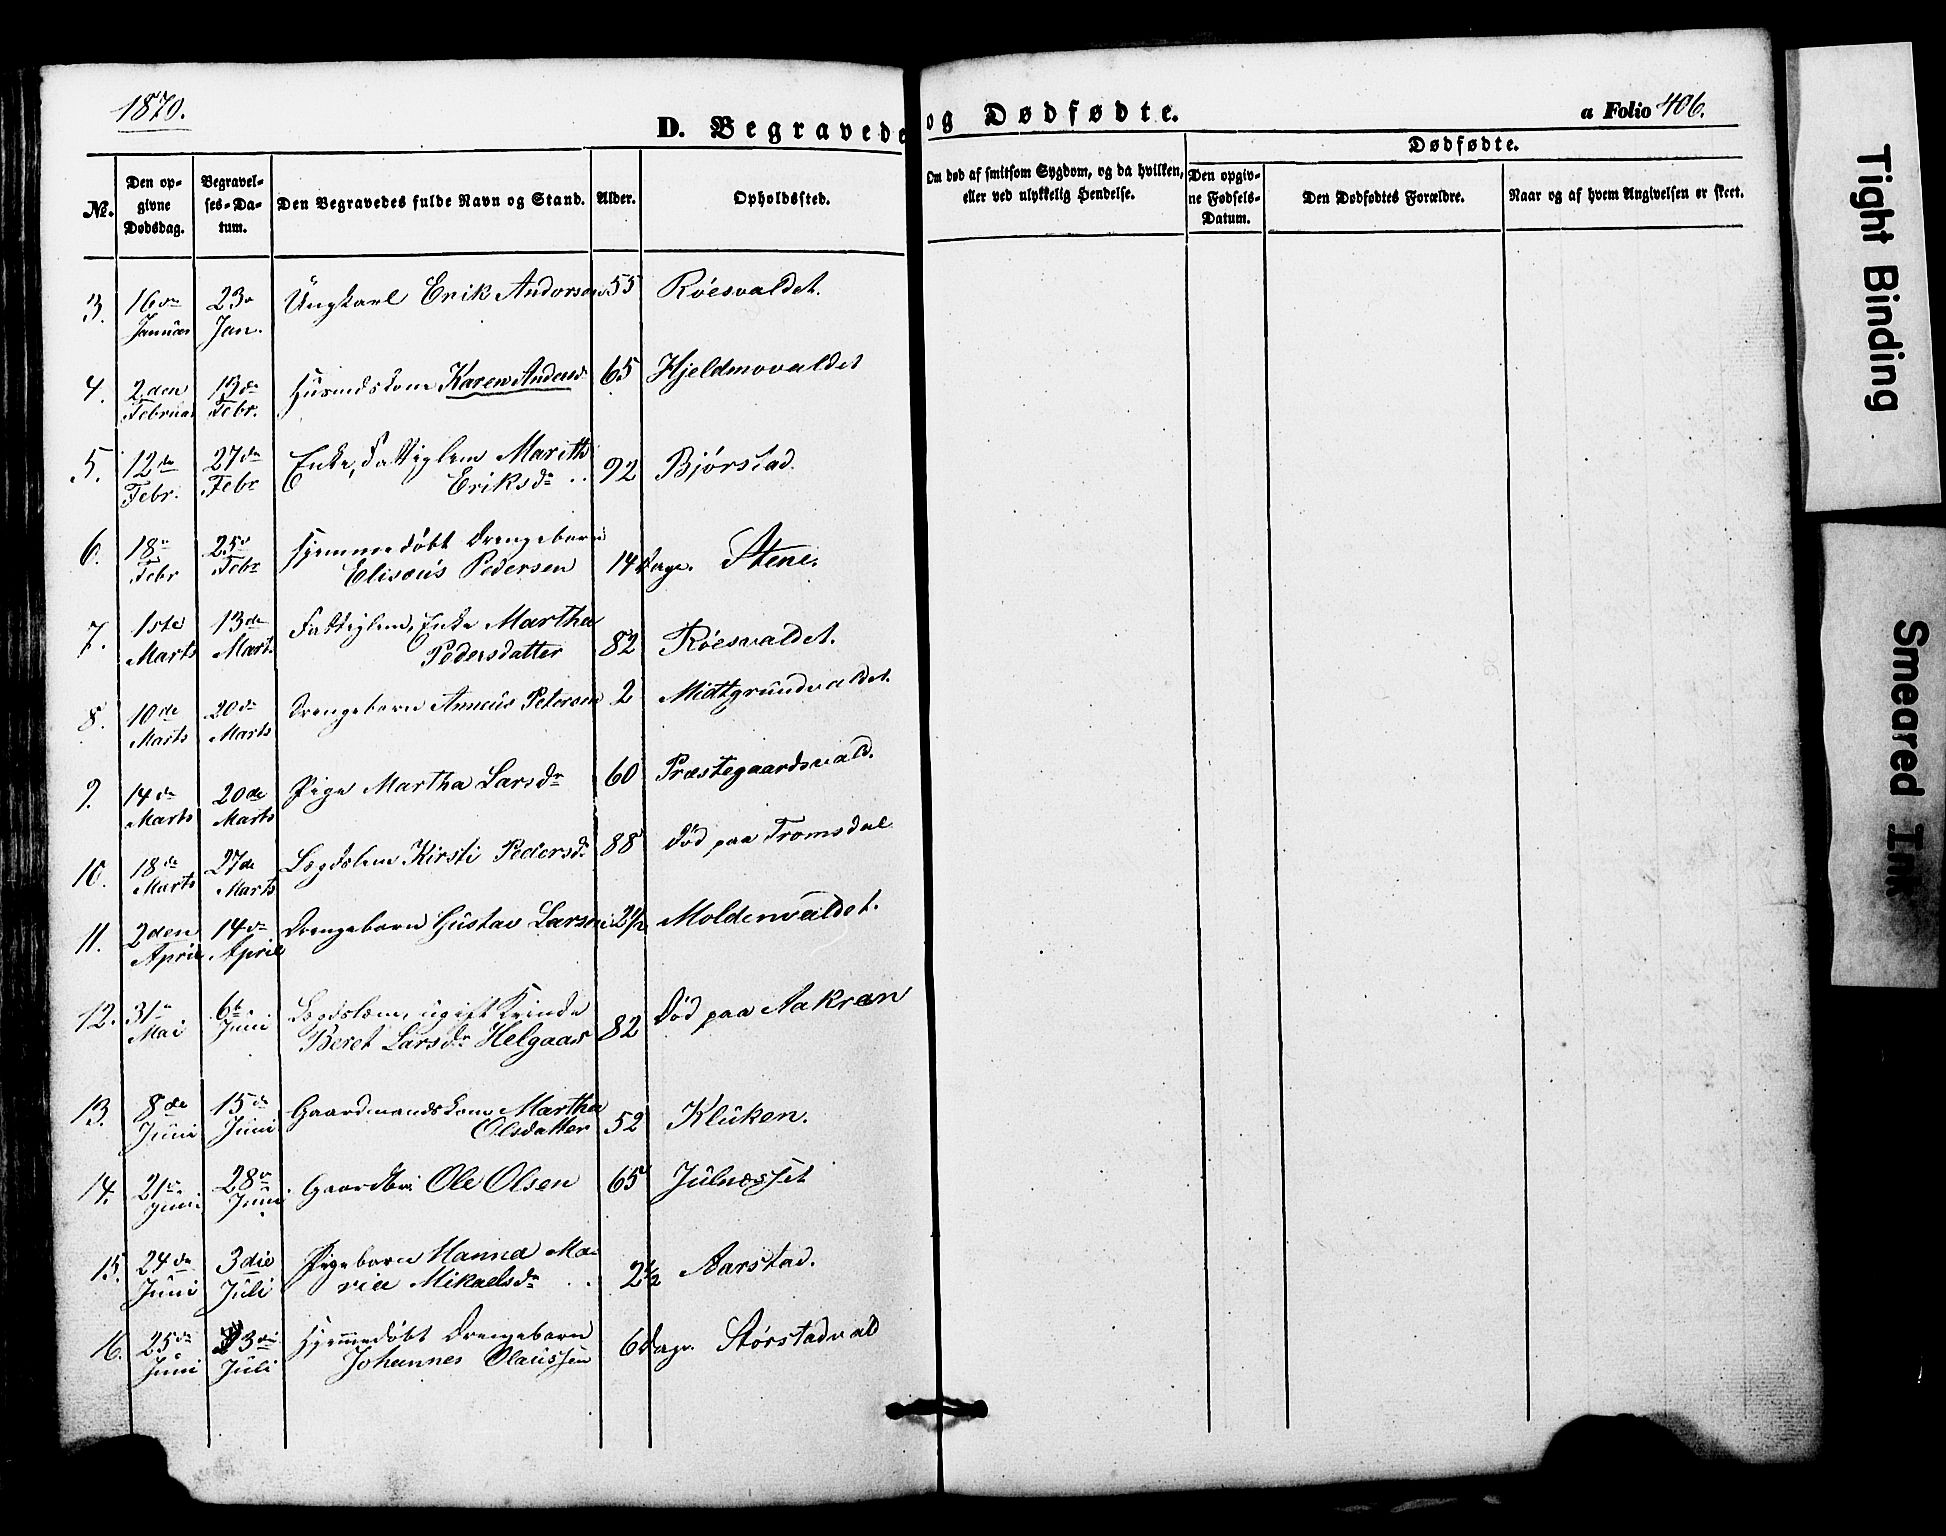 1870.
D. Begravede og Dødfødte.
a Folio 406.
№.
Den opgivne Dødsdag.
Begravelses-Datum.
Den Begravedes fulde Navn og Stand.
Alder.
Opholdsted.
Om død af smitsom Sygdom, og da hvilken, eller ved ulykkelig Hendelse.
Dødfødte.
Den opgivne Fødsels-Datum.
Den Dødfødtes Forældre.
Naar og af hvem Angivelsen er skeet.
3. 16de Januar 23de Jan. Ungkarl Erik Anderson 55 Röesvaldet.
4. 2den Februar 13de Febr. Husmdskone Karen Andersd. 65 Hjeldmovaldet
5. 12de Febr. 27de Febr Enke, Fattiglem Marith
Eriksdr 92 Bjørstad.
6. 18de Febr 25de Febr Hjemmedøbt Drengebarn
Elisæus Pedersen 14 Dage. Stene.
7. 1ste Marts 13de Mart. Fattiglem, Enke Martha
Pedersdatter 82 Röesvaldet.
8. 10de Marts 20de Marts Drengebarn Annæus Peterson 2 Midtgrundvaldet.
9. 14de Marts 20de Marts Pige Martha Larsdr 60 Præstegaardsvald.
10. 18de Marts 27de Marts Lægdslem Kirsti Pedersd. 88 Død paa Tromsdal
11. 2den April 14de April Drengebarn Gustav Larson 2 1/2 Moldenvaldet.
12. 31te Mai 6te Juni Lægdslem, ugift Kvinde
Beret Larsdr Helgaas 82 Død paa Aakran
13. 8de Juni 15de Juni Gaardmandskone Martha
Olsdatter 52 Klüken.
14. 21de Juni 28de Juni Gaardbr. Ole Olsen 65 Julnæsset
15. 24de Juni 3die Juli Pigebarn Hanna Ma-
ria Mikaelsdr 2 1/2 Aarstad.
16. 25de Juni 3die Juli Hjemmedøbt Drengebarn
Johannes Olaussen 6 Dage. Størstadvald
Tight Binding
Smeared Ink